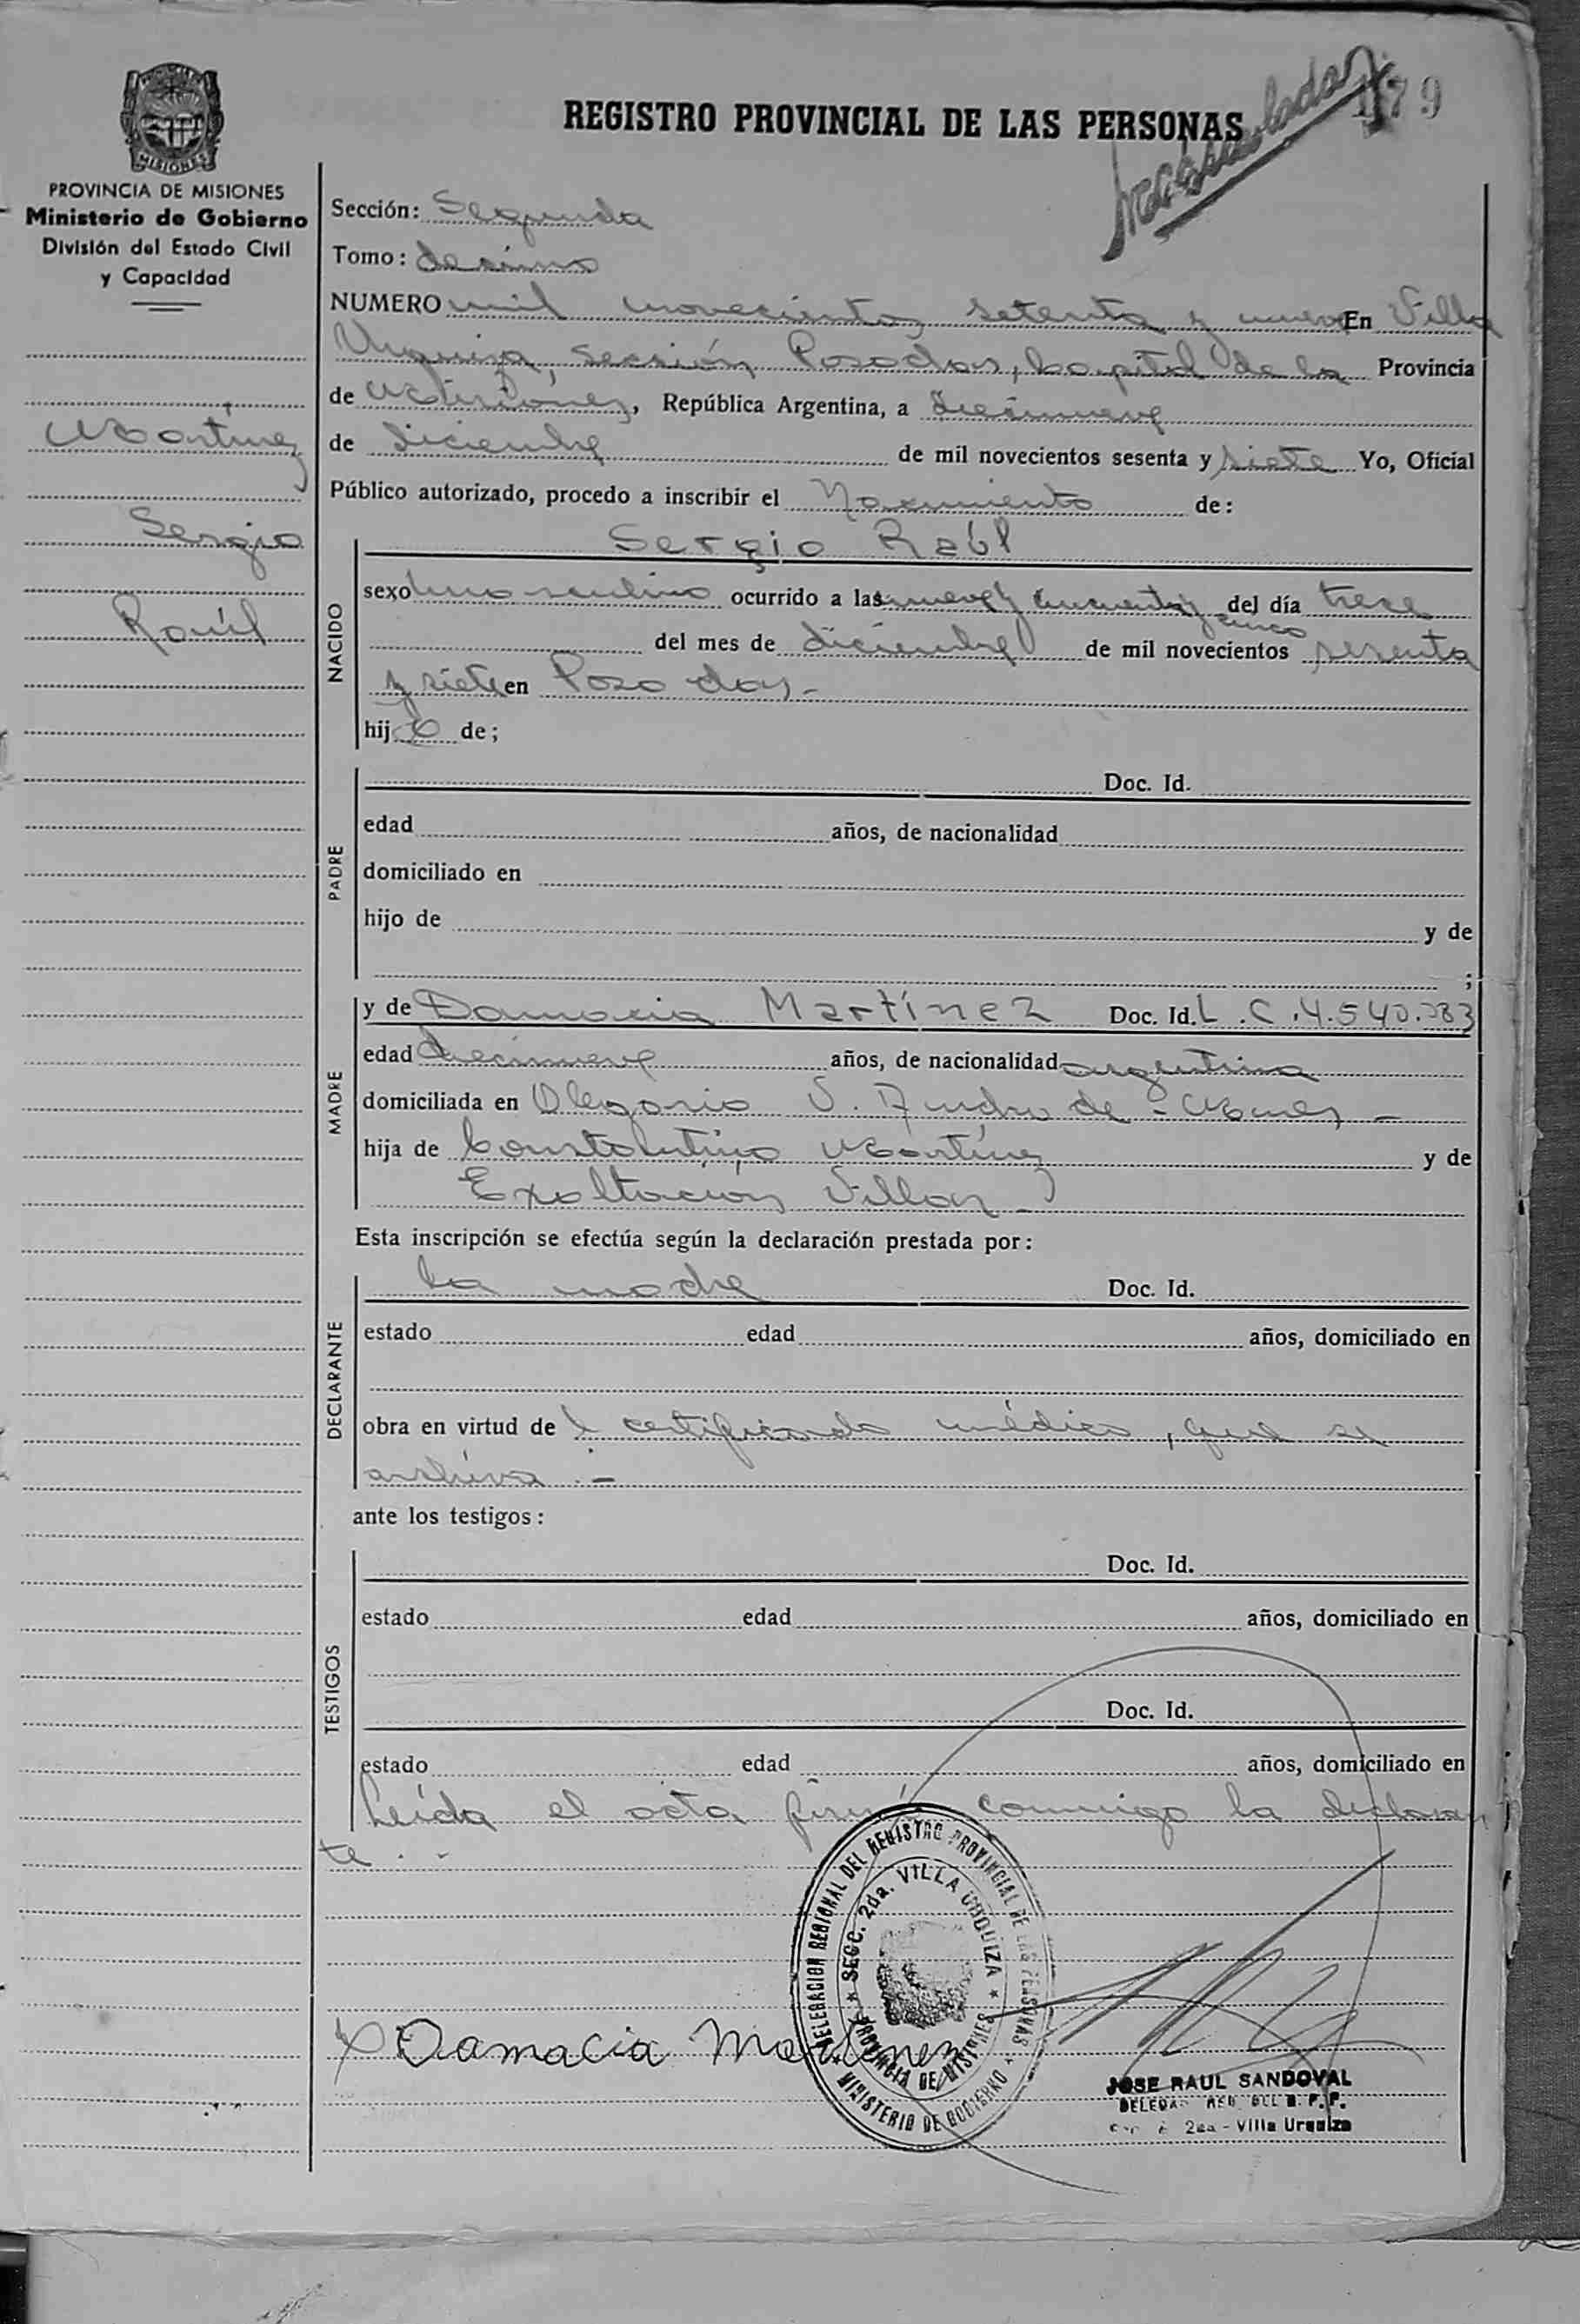 179
REGISTRO PROVINCIAL DE LAS PERSONAS
PROVINCIA DE MISIONES
MISIONES
PROVINCIA DE MISIONES
Ministerio de Gobierno
División del Estado Civil
y Capacidad
Martínez
Sergio
Raúl
Sección: Segunda
Tomo: decimo
NUMERO mil novecientos setenta y nueve En Villa
Urquiza, sección Posadas, Capital de la Provincia
de Misiones, República Argentina, a diecinueve
de diciembre de mil novecientos sesenta y siete Yo, Oficial
Público autorizado, procedo a inscribir el Nacimiento de:
NACIDO
Sergio Raúl
sexo masculino ocurrido a las nueve y cincuenta y cinco del día trece
del mes de diciembre de mil novecientos sesenta
y siete en Posadas.-
hijo de;
PADRE
Doc. Id.
edad años, de nacionalidad
domiciliado en
hijo de y de
;
MADRE
y de Damacia Martínez Doc. Id. L.C.4.540.383
edad diecinueve años, de nacionalidad argentina
domiciliada en Olegario V. Andra de - Mnes -
hija de Martínez y de
Exaltación Villar -
Esta inscripción se efectúa según la declaración prestada por:
DECLARANTE
La madre Doc. Id.
estado edad años, domiciliado en
obra en virtud de l certificado médico, que se
archiva.-
ante los testigos:
TESTIGOS
Doc. Id.
estado edad años, domiciliado en
Doc. Id.
estado edad años, domiciliado en
Leída el acta firmó conmigo la declaran
te.-
DELEGACION REGIONAL DEL REGISTRO PROVINCIAL DE LAS PERSONAS
★ SECC. 2da. VILLA URQUIZA ★
PROVINCIA DE MISIONES
★ MINISTERIO DE GOBIERNO ★
Damacia Martinez
JOSE RAUL SANDOVAL
DELEGA REG DEL R. P. P.
2da - Villa Urquiza